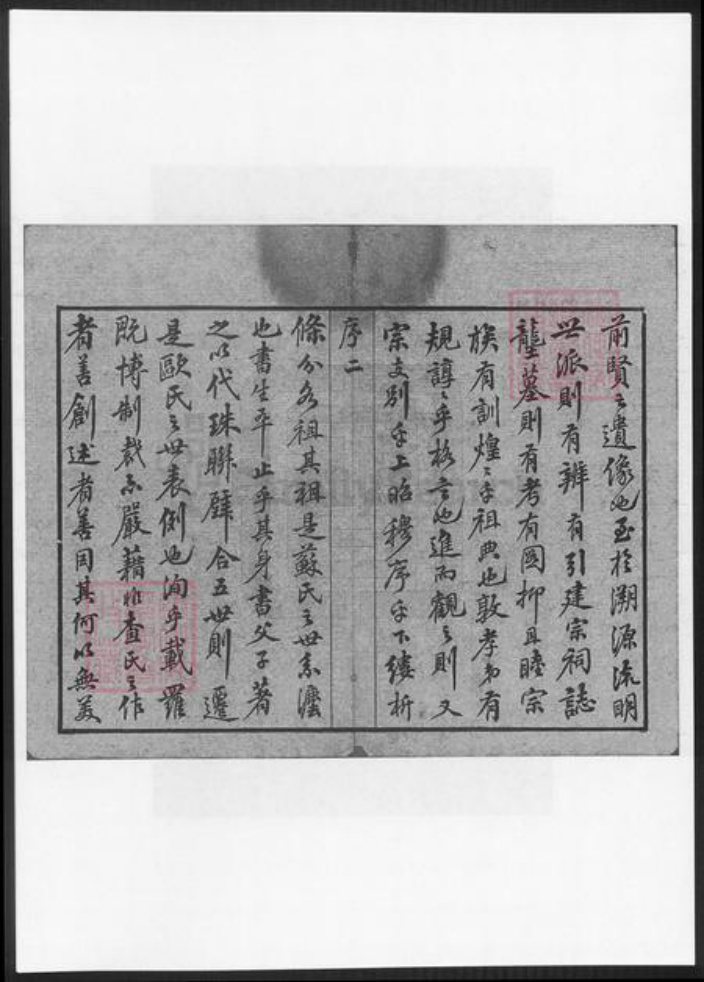 前賢之遺像也至於溯源流明
世派則有辨有引建宗祠誌
壟墓則有考有圖抑且睦宗
族有訓煌〻乎祖典也敦孝弟有
規諄〻乎格言也進而觀之則又
宗支別乎上昭穆序乎下縷析
序二
條分各祖其祖是蘇氏之世系瀍
也書生平止乎其身書父子著
之以代珠聯璧合五世則遷
是歐氏之世表例也洵乎載羅
既博制裁亦嚴藉非查氏之作
者善創述者善因其何以無美